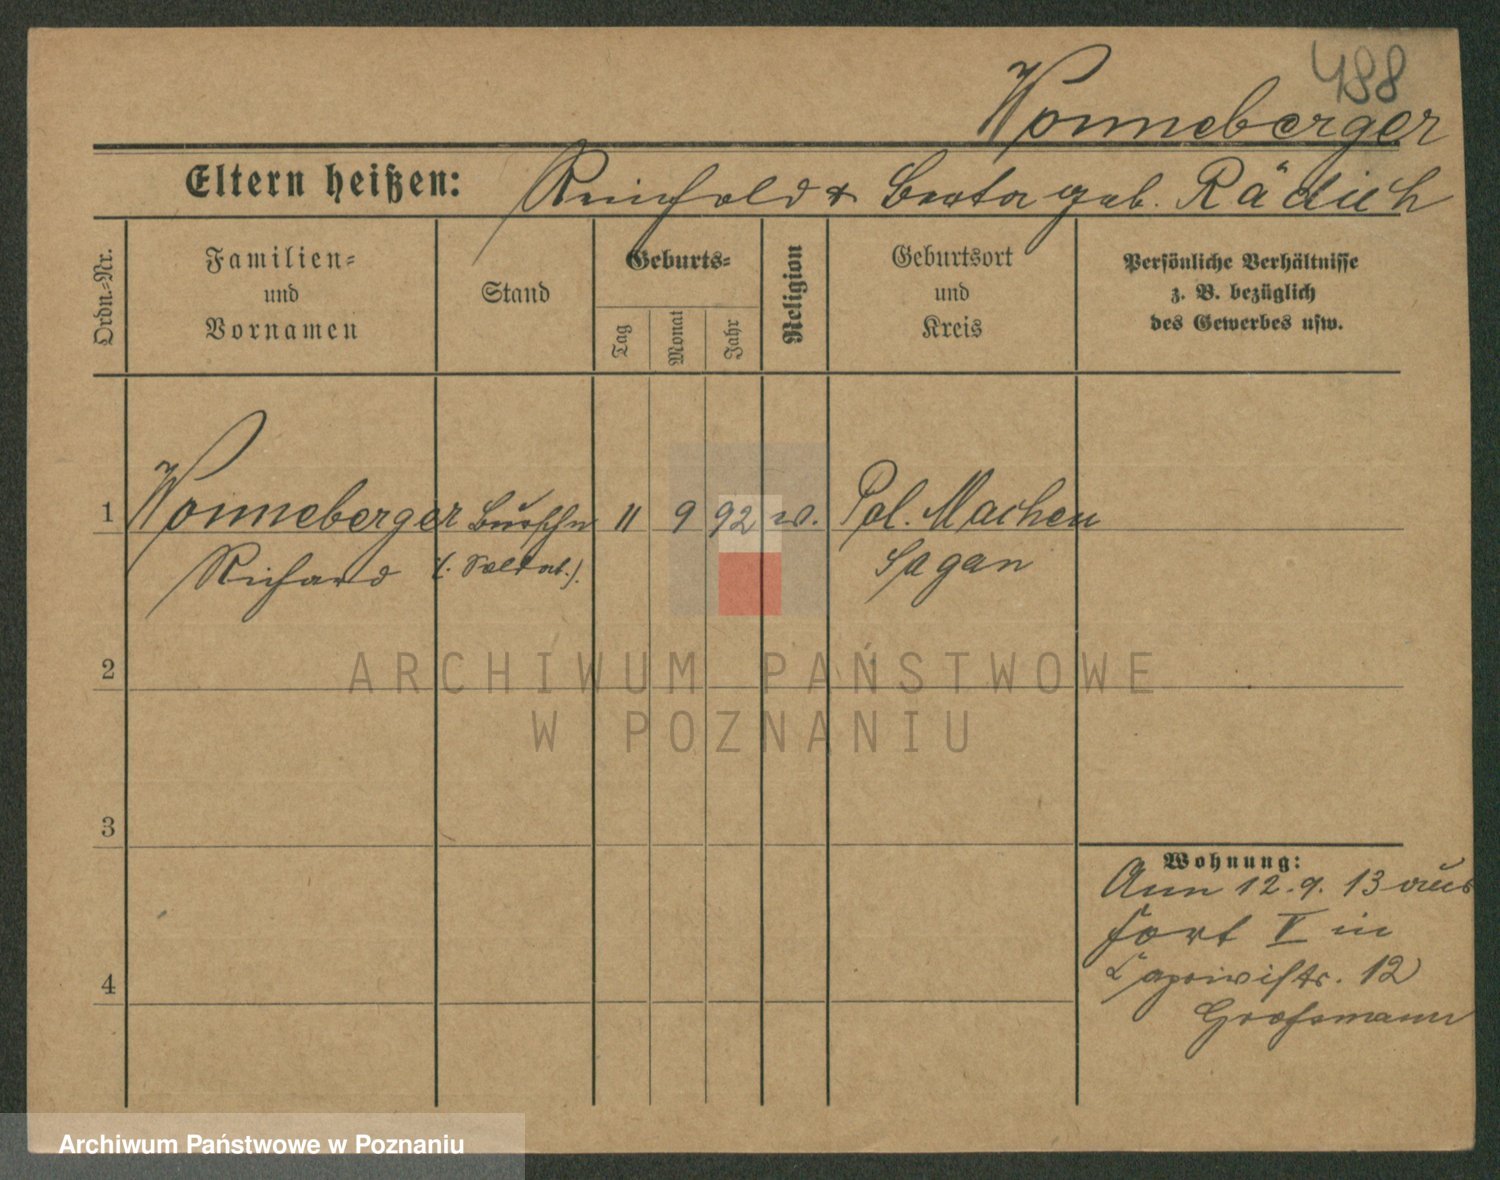 488
Wonneberger
Eltern heißen: Reinhold & Berta geb. Rädisch
Ordn.-Nr.
Familien-
und
Vornamen
Stand
Geburts-
Tag
Monat
Jahr
Religion
Geburtsort
und
Kreis
Persönliche Verhältnisse
z. B. bezüglich
des Gewerbes usw.
1 Wonneberger Bursche 11 9 92 ev. Pol. Machen
Richard (: Soldat :). Sagan
2
3
4
Wohnung:
Am 12.9.13 aus
Fort V in
Caprivistr. 12
Großmann
ARCHIWUM PAŃSTWOWE
W POZNANIU
Archiwum Państwowe w Poznaniu